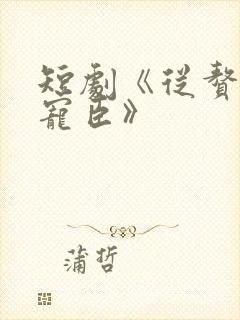 短劇《從贅
寵臣》
蒲哲